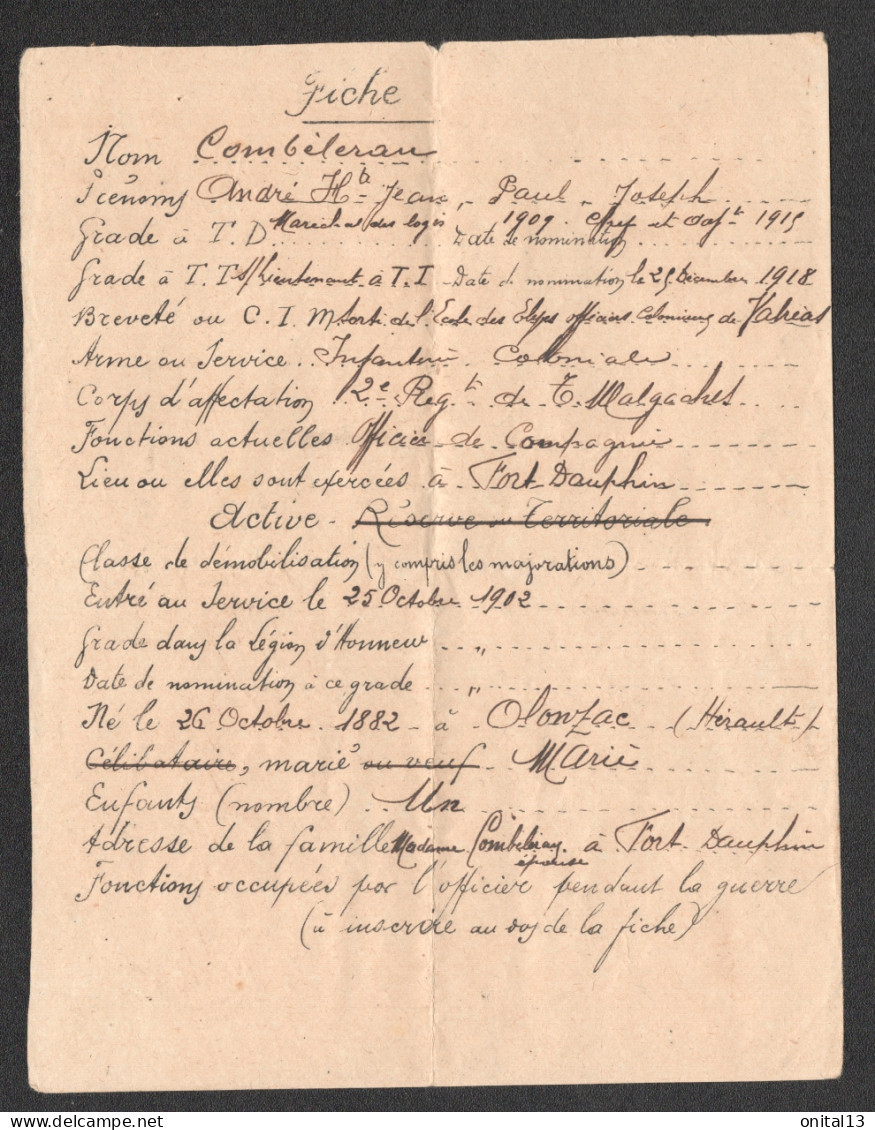 Fiche
Nom Combéleran
Prénoms André Hte Jean, Paul, Joseph
Grade à T.D. Maréchal des logis 1909. Chef et Adjt 1915
Date de nomination
Grade à T.T. s/Lieutenant à T.T. Date de nomination le 25 Décembre 1918
Breveté ou C.I.M. Sorti de l'École des Elèves officiers Coloniaux de
Arme ou Service. Infanterie Coloniale
Corps d'affectation 2e Regt de T. Malgaches
Fonctions actuelles Officier de Compagnie
Lieu ou elles sont exercées à Fort Dauphin
Active - Réserve ou Territoriale
Classe de démobilisation (y compris les majorations)
Entré au Service le 25 Octobre 1902
Grade dans la Légion d'Honneur "
Date de nomination à ce grade "
Né le 26 Octobre 1882 à Olonzac (Hérault)
Célibataire, marié ou veuf Marié
Enfants (nombre) Un
Adresse de la famille Madame Combéleran à Fort Dauphin
épouse
Fonctions occupées par l'officier pendant la guerre
(à inscrire au dos de la fiche)
onital13